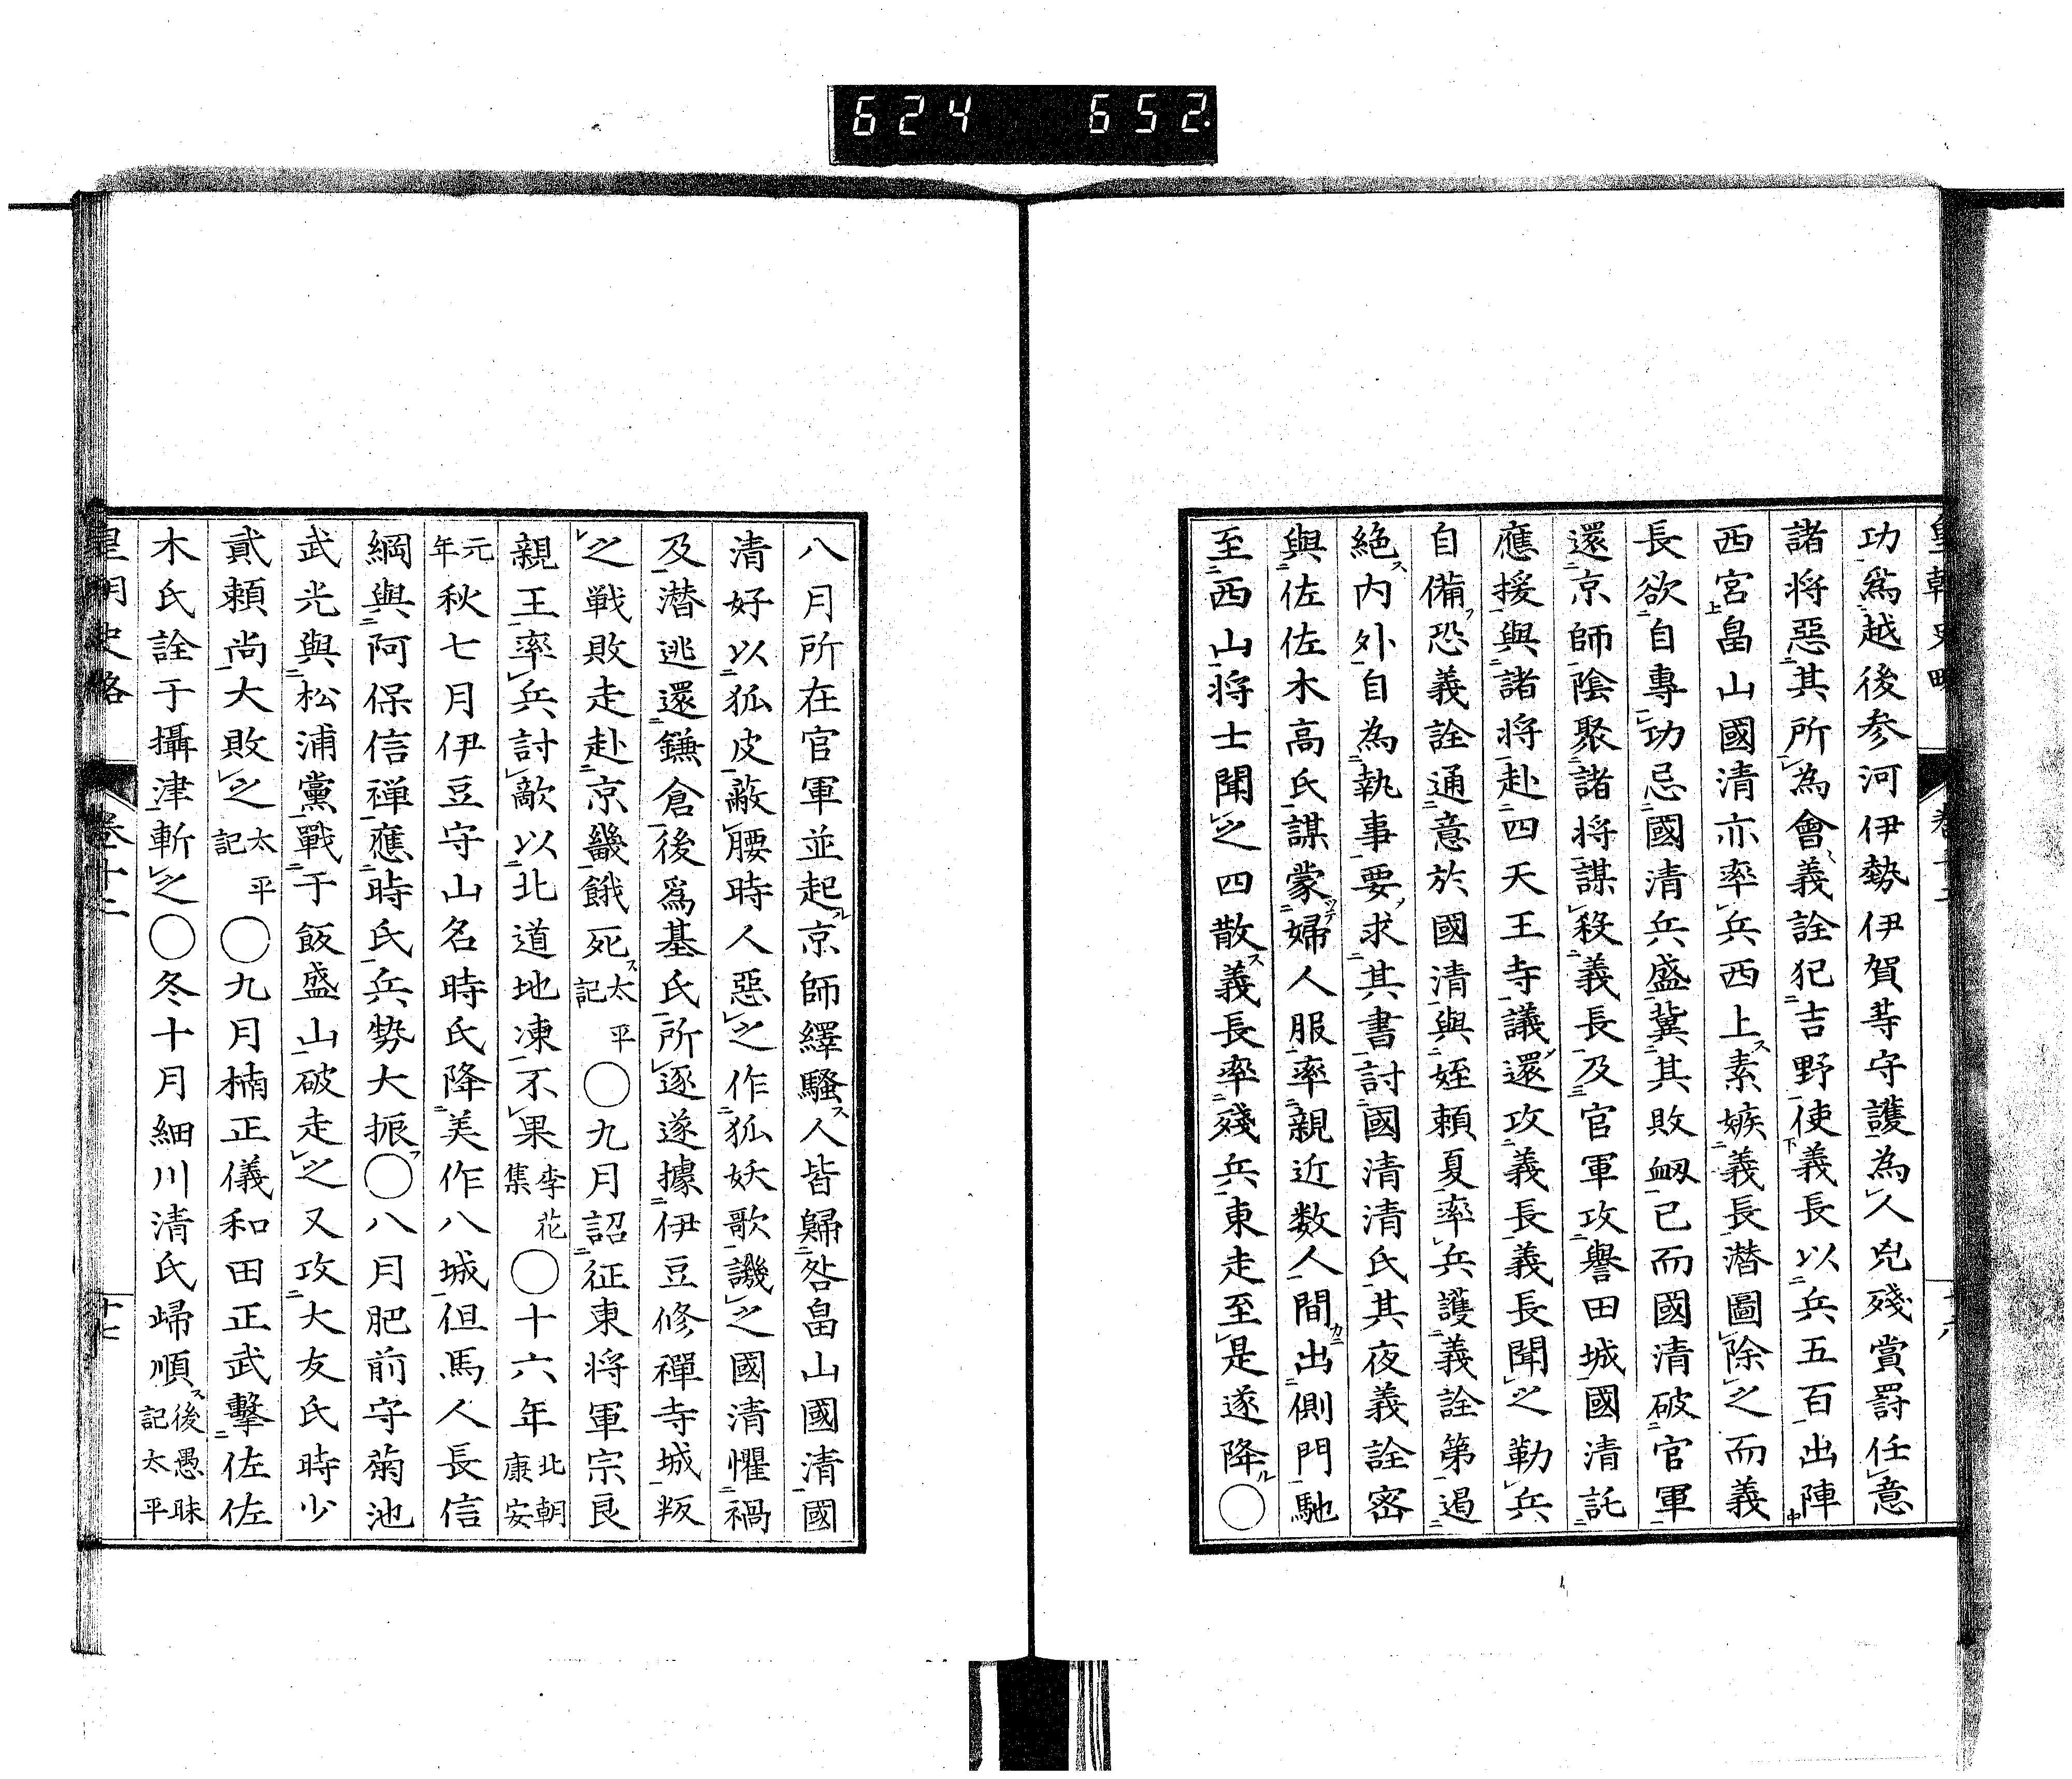 624 652.
皇朝史略 卷十二 十六
功為越後參河伊勢伊賀等守護為人兇殘賞罰任意
諸将惡其所為會義詮犯吉野使義長以兵五百出陣
西宮畠山國清亦率兵西上素嫉義長潜圖除之而義
長欲自專功忌國清兵盛冀其敗衂已而國清破官軍
還京師陰聚諸将謀殺義長及官軍攻譽田城國清託
應援與諸将赴四天王寺議還攻義長義長聞之勒兵
自備恐義詮通意於國清與姪頼夏率兵護義詮第遏
絶内外自為執事要求其書討國清清氏其夜義詮密
與佐佐木高氏謀蒙婦人服率親近数人間出側門馳
至西山将士聞之四散義長率殘兵東走至是遂降○
八月所在官軍並起京師繹騷人皆歸咎畠山國清國
清好以狐皮蔽腰時人惡之作狐妖歌譏之國清懼禍
及潜逃還鎌倉後為基氏所逐遂據伊豆修禪寺城叛
之戰敗走赴京畿餓死太平記○九月詔征東将軍宗良
親王率兵討敵以北道地凍不果李花集○十六年北朝康安
元年秋七月伊豆守山名時氏降美作八城但馬人長信
綱與阿保信禅應時氏兵勢大振○八月肥前守菊池
武光與松浦黨戰于飯盛山破走之又攻大友氏時少
貳頼尚大敗之太平記○九月楠正儀和田正武擊佐佐
木氏詮于攝津斬之○冬十月細川清氏歸順後愚昧記太平
皇朝史略 卷十二 十七